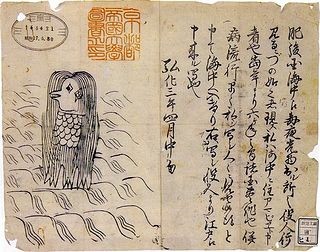 肥後国海中え毎夜光物出ル所之役人行
見るニづの如く者現ス私ハ海中ニ住アマビヱト申
者也当年より六ヶ年之間諸国豊作也併
病流行早々私写シ人々ニ見せ候得と
申て海中へ入けり右写シ役人より江戸え
申来ル写也
弘化三年四月中旬
京都帝國大學圖書之印